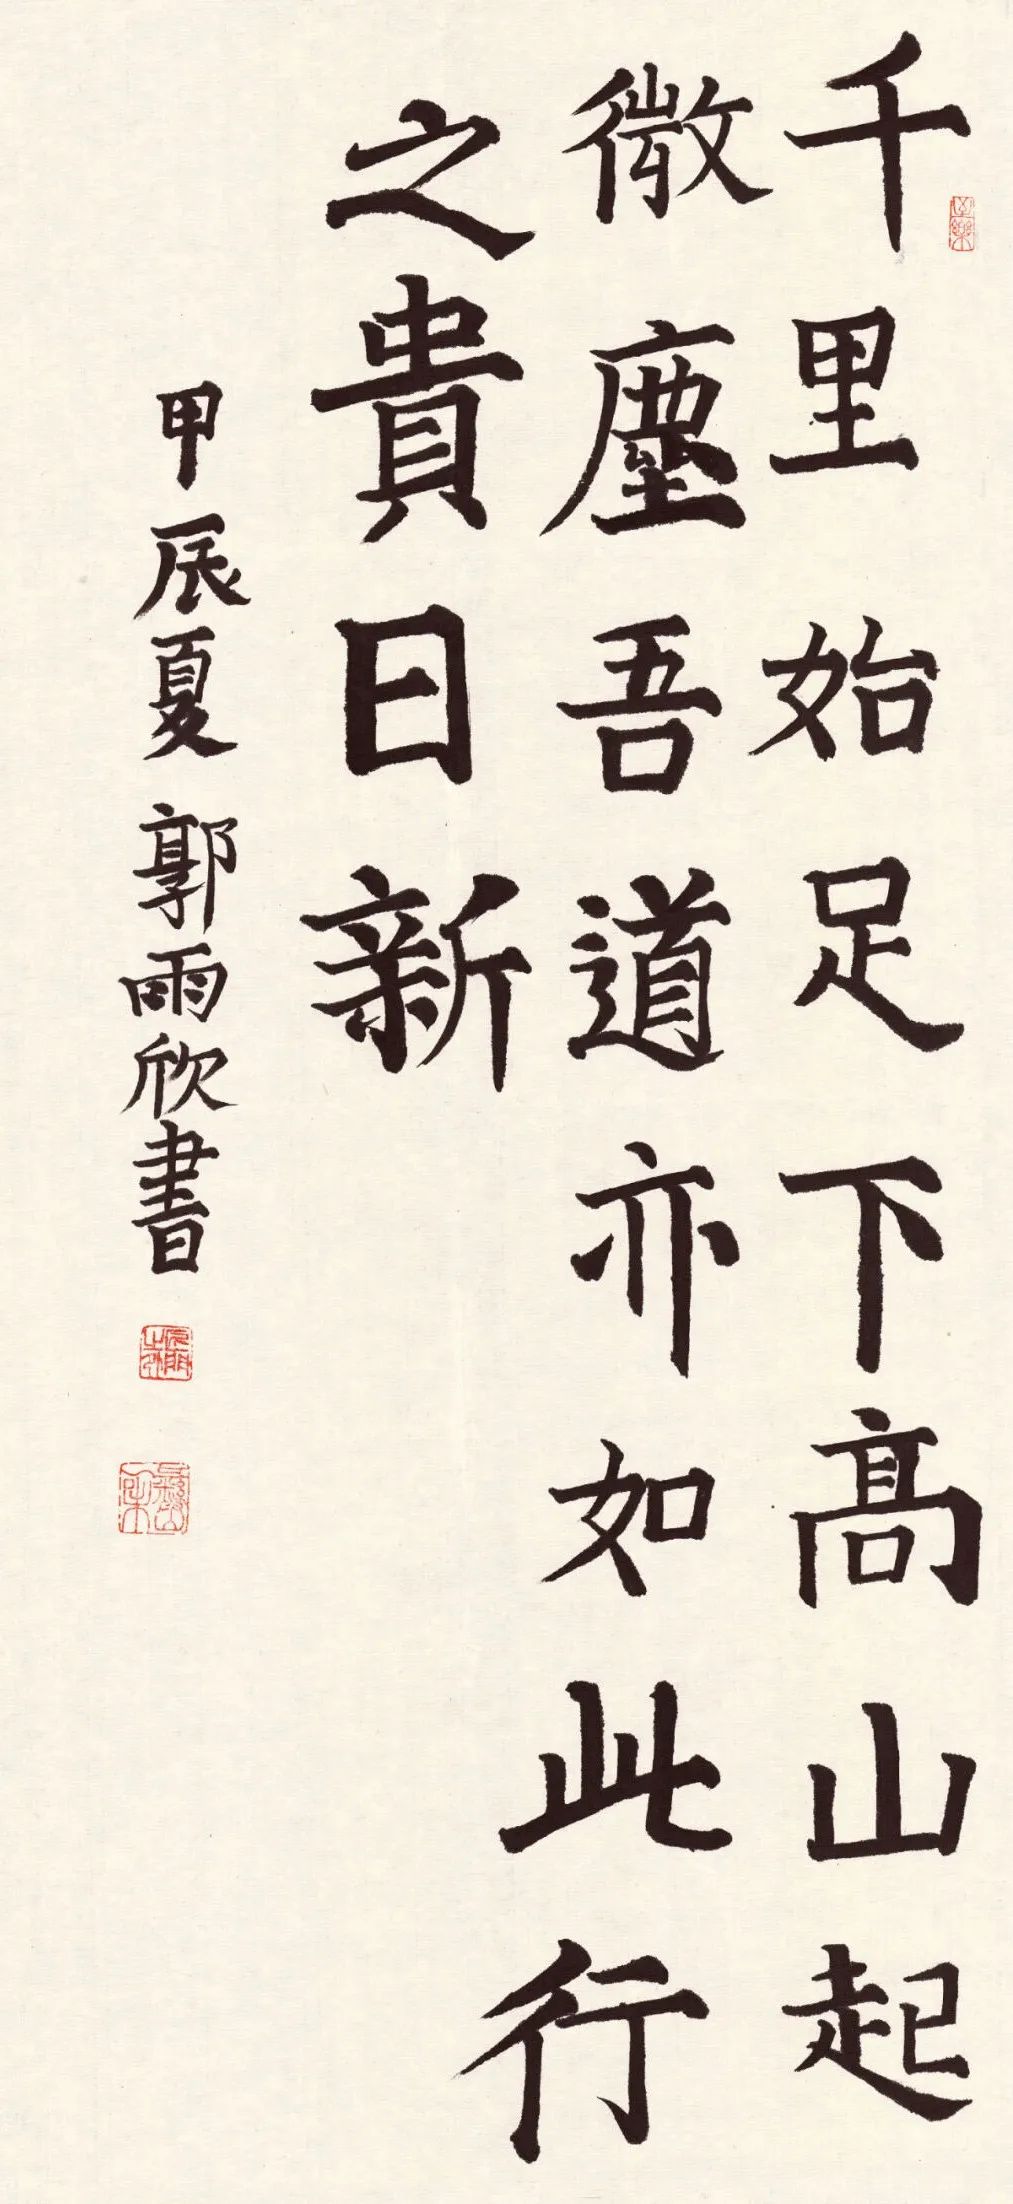 千里始足下高山起
微塵吾道亦如此行
之貴日新
甲辰夏郭雨欣書